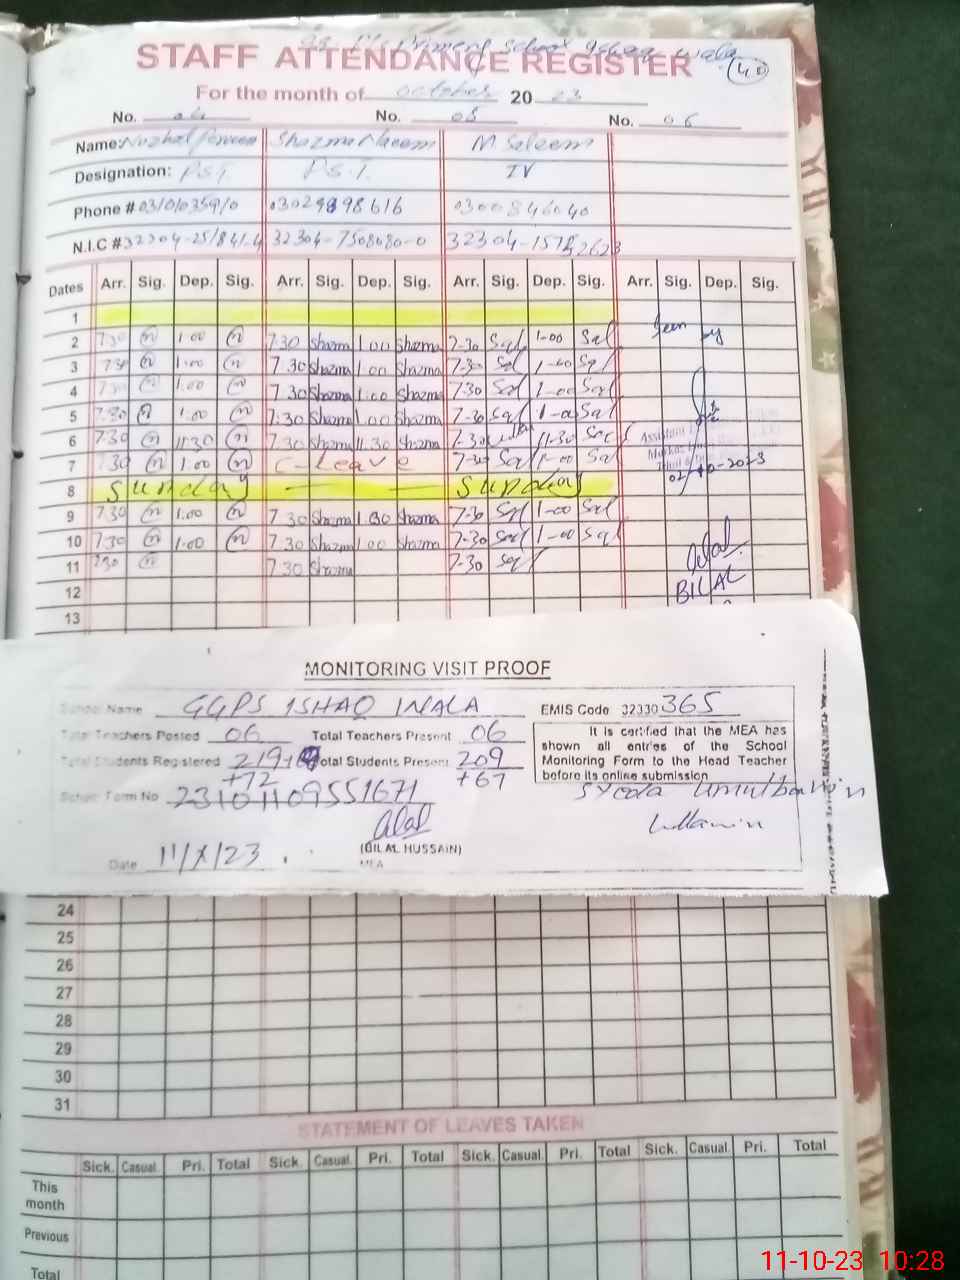 School
STAFF ATTENDANCE REGISTER
For the month of October 20 23
No. 04 No. 05 No. 06
Name: Shazma Naeem M. Saleem
Designation: P.S.T. P.S.T. IV
Phone # 03029898616 0300846040
N.I.C # 32304-7508080-0
Dates Arr. Sig. Dep. Sig. Arr. Sig. Dep. Sig. Arr. Sig. Dep. Sig. Arr. Sig. Dep. Sig.
1
2 7:30 1:00 7:30 Shazma 1:00 Shazma 7-30 Sql 1-00 Sql Seen by
3 7:30 1:00 7:30 Shazma 1:00 Shazma 7-30 Sql 1-00 Sql
4 7:30 1:00 7:30 Shazma 1:00 Shazma 7-30 Sql 1-00 Sql
5 7:30 1:00 7:30 Shazma 1:00 Shazma 7-30 Sql 1-00 Sql
6 7:30 11:30 7:30 Shazma 11:30 Shazma 7-30 11-30 Assistant
7 7:30 1:00 C-Leave 7-30 Sql 1-00 Sql
8 Sunday — — Sunday 02/10-2023
9 7:30 1:00 7:30 Shazma 1:30 Shazma 7-30 Sql 1-00 Sql
10 7:30 1:00 7:30 Shazma 1:00 Shazma 7-30 Sql 1-00 Sql
11 7:30 7:30 Shazma 7-30 Sql
12 BILAL
13
MONITORING VISIT PROOF
School Name GGPS ISHAQ WALA EMIS Code 32330365
Total Teachers Posted 06 Total Teachers Present 06
Total Students Registered 219 Total Students Present 209
+72 +67
School Form No 23101109551671
It is certified that the MEA has
shown all entries of the School
Monitoring Form to the Head Teacher
before its online submission
Syeda
(BILAL HUSSAIN)
MEA
Date 11/X/23
24
25
26
27
28
29
30
31
STATEMENT OF LEAVES TAKEN
Sick. Casual. Pri. Total Sick. Casual. Pri. Total Sick. Casual. Pri. Total Sick. Casual. Pri. Total
This
month
Previous
Total
11-10-23 10:28